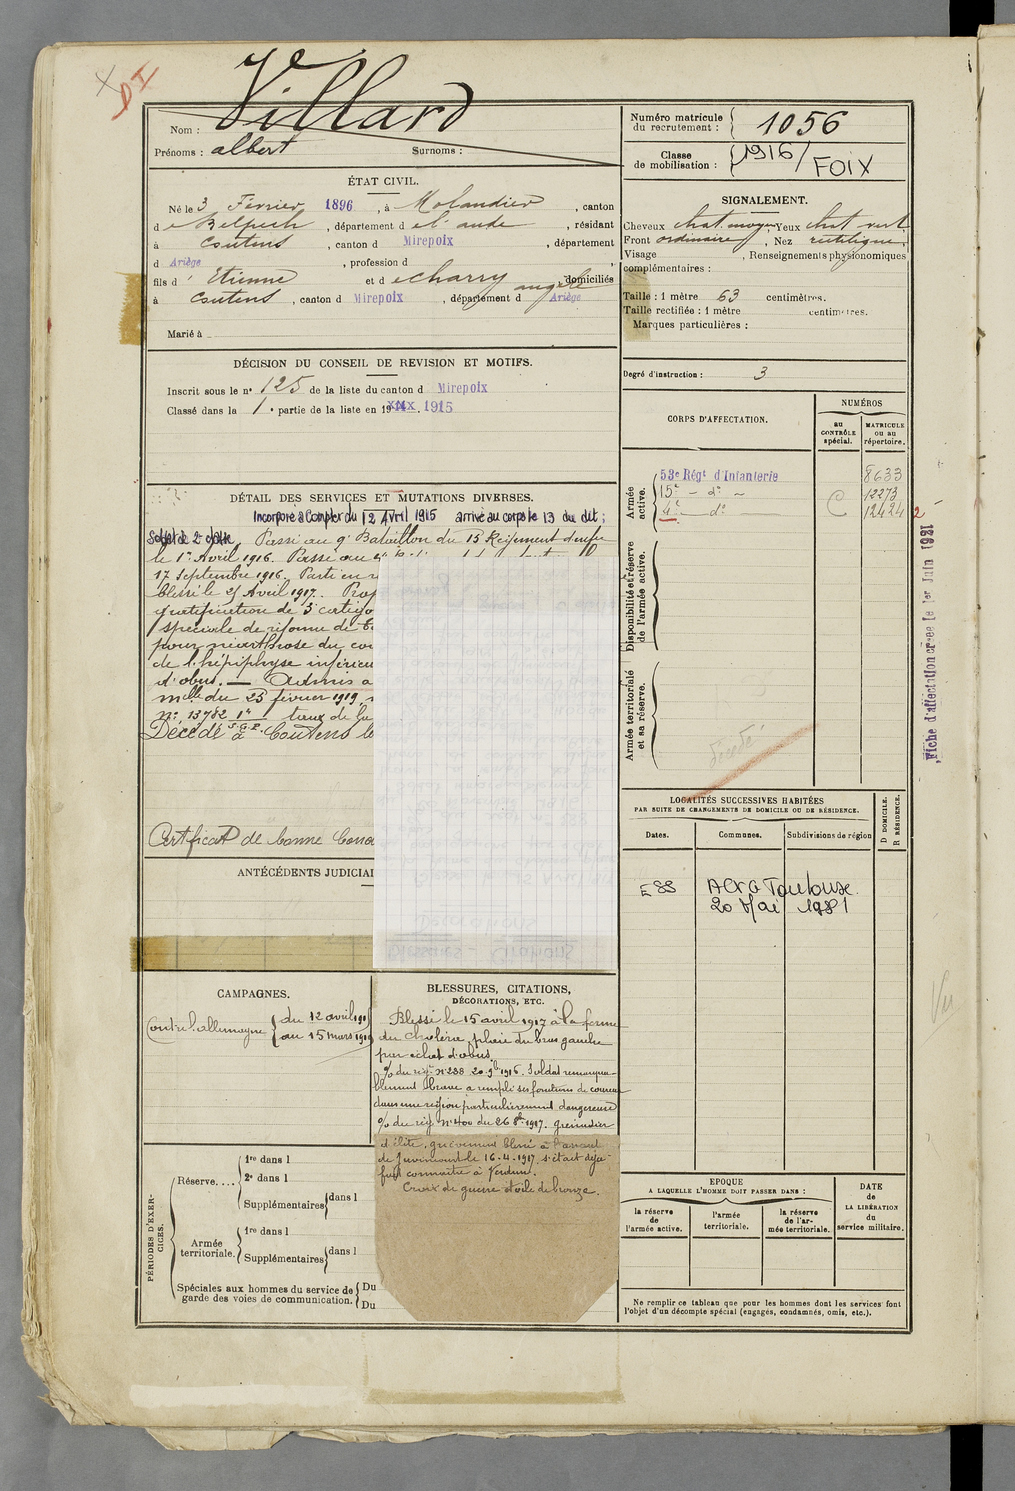 DI
Nom : Villard
Prénoms : albert Surnoms :
Numéro matricule du recrutement : 1056
Classe de mobilisation : 1916/ FOIX
ÉTAT CIVIL.
Né le 3 Février 1896, à Molandier, canton
de Belpech, département de l'aude, résidant
à Coutens, canton d Mirepoix, département
d Ariège, profession d
fils d' Etienne et de charry angèle domiciliés
à Coutens, canton d Mirepoix, département d Ariège
Marié à
SIGNALEMENT.
Cheveux chat. moyen, Yeux chat vert
Front ordinaire, Nez rectiligne.
Visage , Renseignements physionomiques
complémentaires :
Taille : 1 mètre 63 centimètres.
Taille rectifiée : 1 mètre centimètres.
Marques particulières :
Degré d'instruction : 3
DÉCISION DU CONSEIL DE REVISION ET MOTIFS.
Inscrit sous le n° 125 de la liste du canton d Mirepoix
Classé dans la 1e partie de la liste en 19 1915
CORPS D'AFFECTATION.
NUMÉROS
au CONTRÔLE spécial.
MATRICULE ou au répertoire.
Armée active.
53e Régt d'Infanterie 8633
15e - do - 12273
4e - do - C 12424 2
Disponibilité et réserve de l'armée active.
Armée territoriale et sa réserve.
décédé
Fiche d'affectation créée le 1er Juin 1921
DÉTAIL DES SERVICES ET MUTATIONS DIVERSES.
Incorporé à compter du 12 Avril 1915 arrivé au corps le 13 du dit;
Soldat de 2e classe. Passé au 9e Bataillon du 15 Régiment d'infie
le 1er Avril 1916. Passé au 4e
17 Septembre 1916. Parti en
blessé le 15 Avril 1917. Prop
spéciale de réforme de
pour
de l'hépiphyse inférieu
d'obus. — Admis a
mlle du 25 février 1919,
n° 13782 1° taux de la
Décédé à Coutens le
Certificat de bonne Condu
ANTÉCÉDENTS JUDICIAI
LOCALITÉS SUCCESSIVES HABITÉES
PAR SUITE DE CHANGEMENTS DE DOMICILE OU DE RÉSIDENCE.
Dates. Communes. Subdivisions de région
D DOMICILE. R RÉSIDENCE.
Toulouse
20 Mai 1981
CAMPAGNES.
Contre l'allemagne du 12 avril 191
au 15 mars 191
BLESSURES, CITATIONS,
DÉCORATIONS, ETC.
Blessé le 15 avril 1917 à la ferme
du Choléra, plaie du bras gauche
par éclat d'obus.
% du régt n° 238 20 9b 1916. Soldat remarqua-
blement brave a rempli ses fonctions de coureur
dans une région particulièrement dangereuse
% du rég n° 400 du 26 1917. grenadier
d'élite, grièvement blessé à l'assaut
de Juvincourt le 16.4.1917 s'était déjà
fait connaître à Verdun.
Croix de guerre étoile de bronze.
PÉRIODES D'EXERCICES.
Réserve....
1re dans l
2e dans l
Supplémentaires dans l
Armée territoriale.
1re dans l
Supplémentaires dans l
Spéciales aux hommes du service de garde des voies de communication. Du
Du
EPOQUE
A LAQUELLE L'HOMME DOIT PASSER DANS :
la réserve de l'armée active.
l'armée territoriale.
la réserve de l'armée territoriale.
DATE de LA LIBÉRATION du service militaire.
Ne remplir ce tableau que pour les hommes dont les services font
l'objet d'un décompte spécial (engagés, condamnés, omis, etc.).